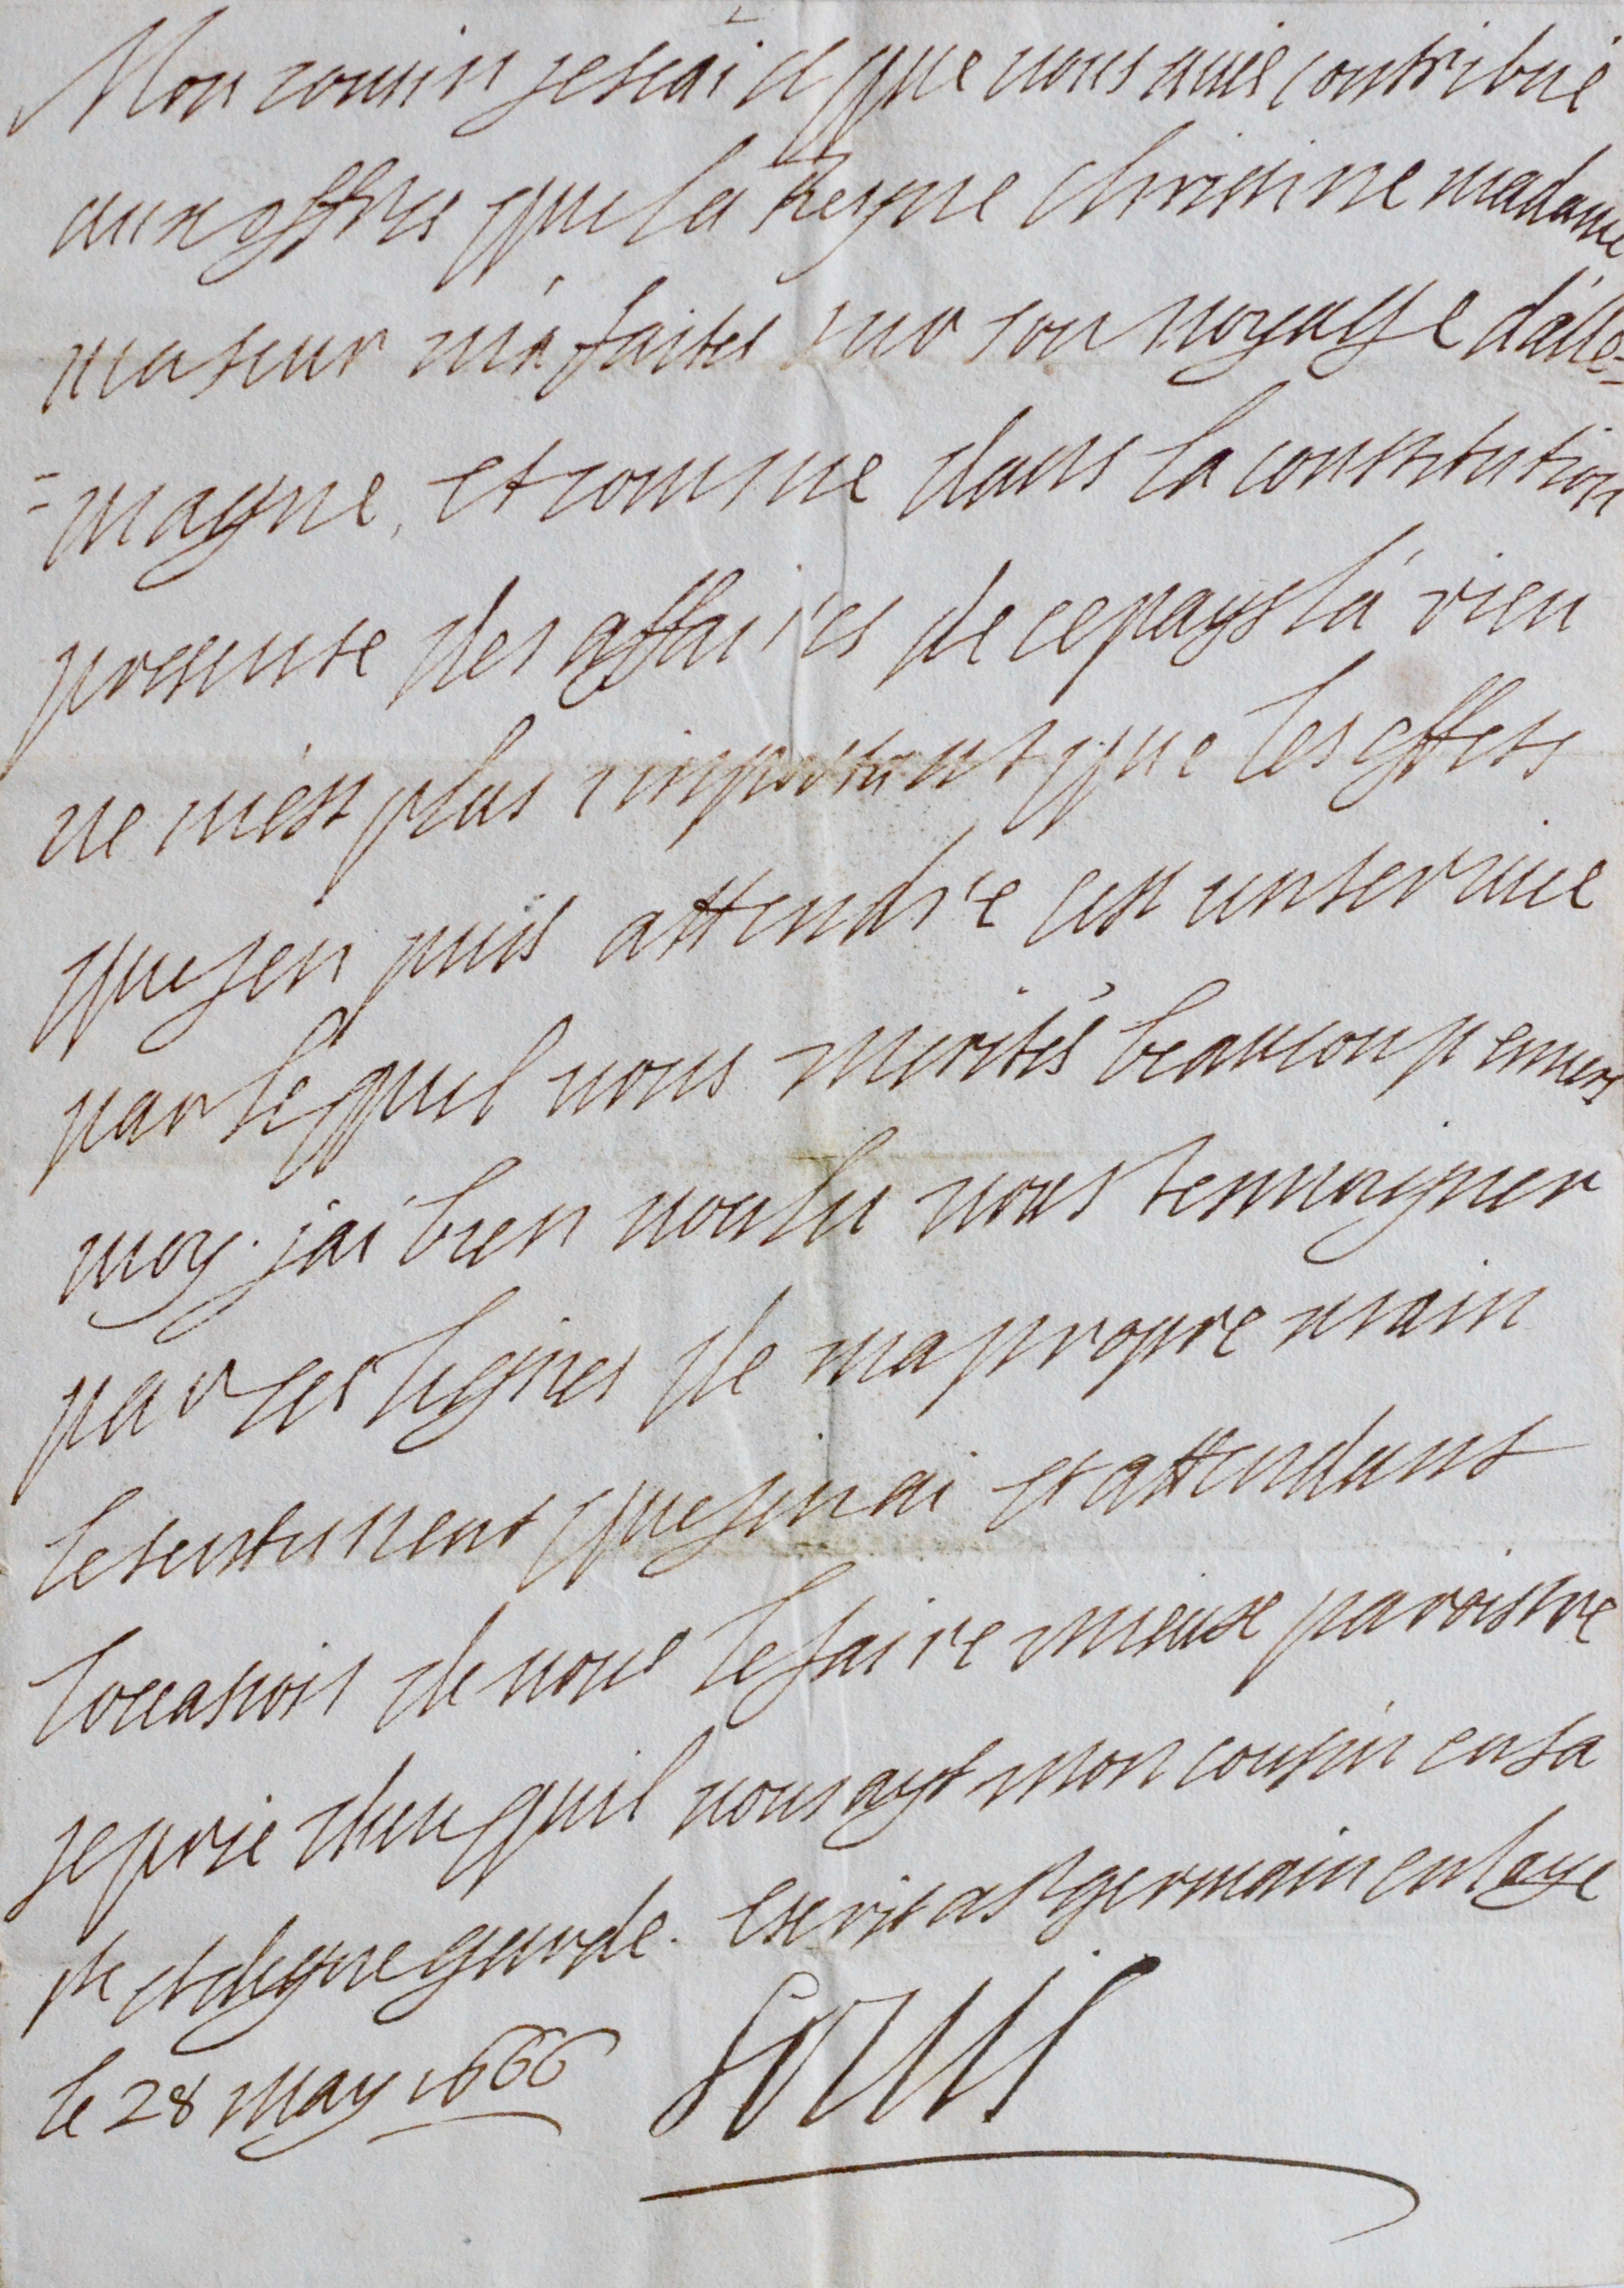 Mon cousin je scai ce que vous aués contribué
aux offres que la Reyne christine madame
ma seur m'a faites sur son voyage d'alle=
=magne, et comme dans la constitution
presente des affaires de ce pays là rien
ne m'est plus important que les effets
que jen puis attendre cest un seruice
par le quel vous merités beaucoup enuers
moy. j'ai bien voulu vous tesmoigner
par ces lignes de ma propre main
le sentiment que jen ai et attendant
loccasion de vous le faire mieux paroistre
je prie dieu quil vous ayt mon cousin en sa
ste et digne garde. escrit a St germain en laye
le 28 may 1666 Louis